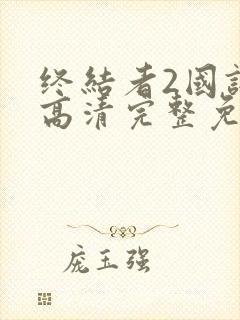 终结者2国
高清完整免
庞玉强